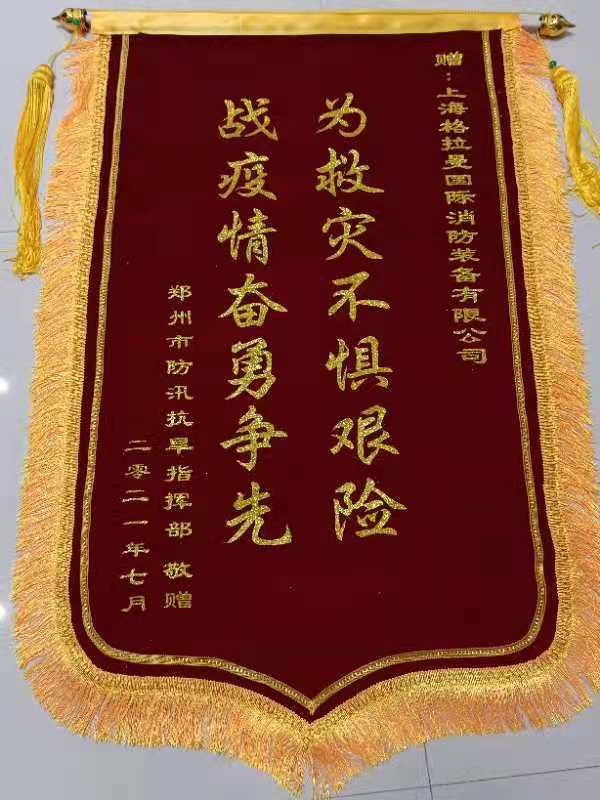 赠：上海格拉曼国际消防装备有限公司
为救灾不惧艰险
战疫情奋勇争先
郑州市防汛抗旱指挥部 敬赠
二零二一年七月